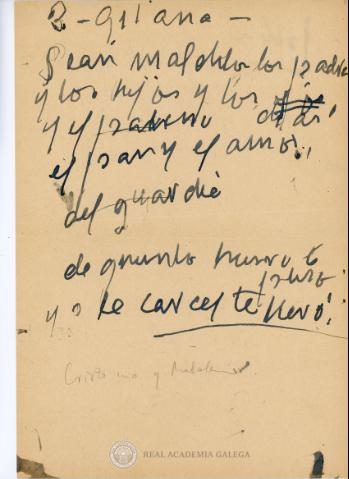 2 - gitana -
Sean malditos los padre
y los hijos y los
y el días,
el pan y el amor,
del guardia
de quinto te
puso
y a la carcel te llevó!
Cristo mio y
REAL ACADEMIA GALEGA